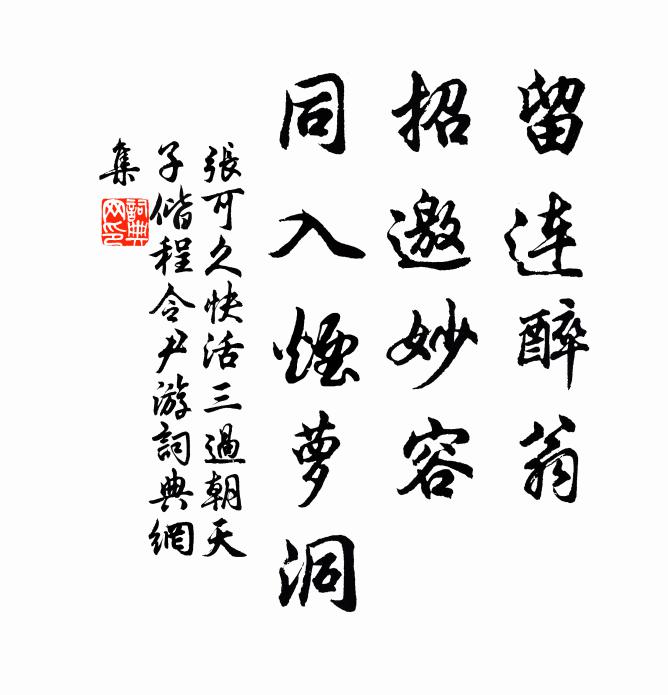 留連醉翁
招邀妙容
同入煙萝洞
張可久快活三過朝天
子偕程令尹游詞典網
集
詞典
网印